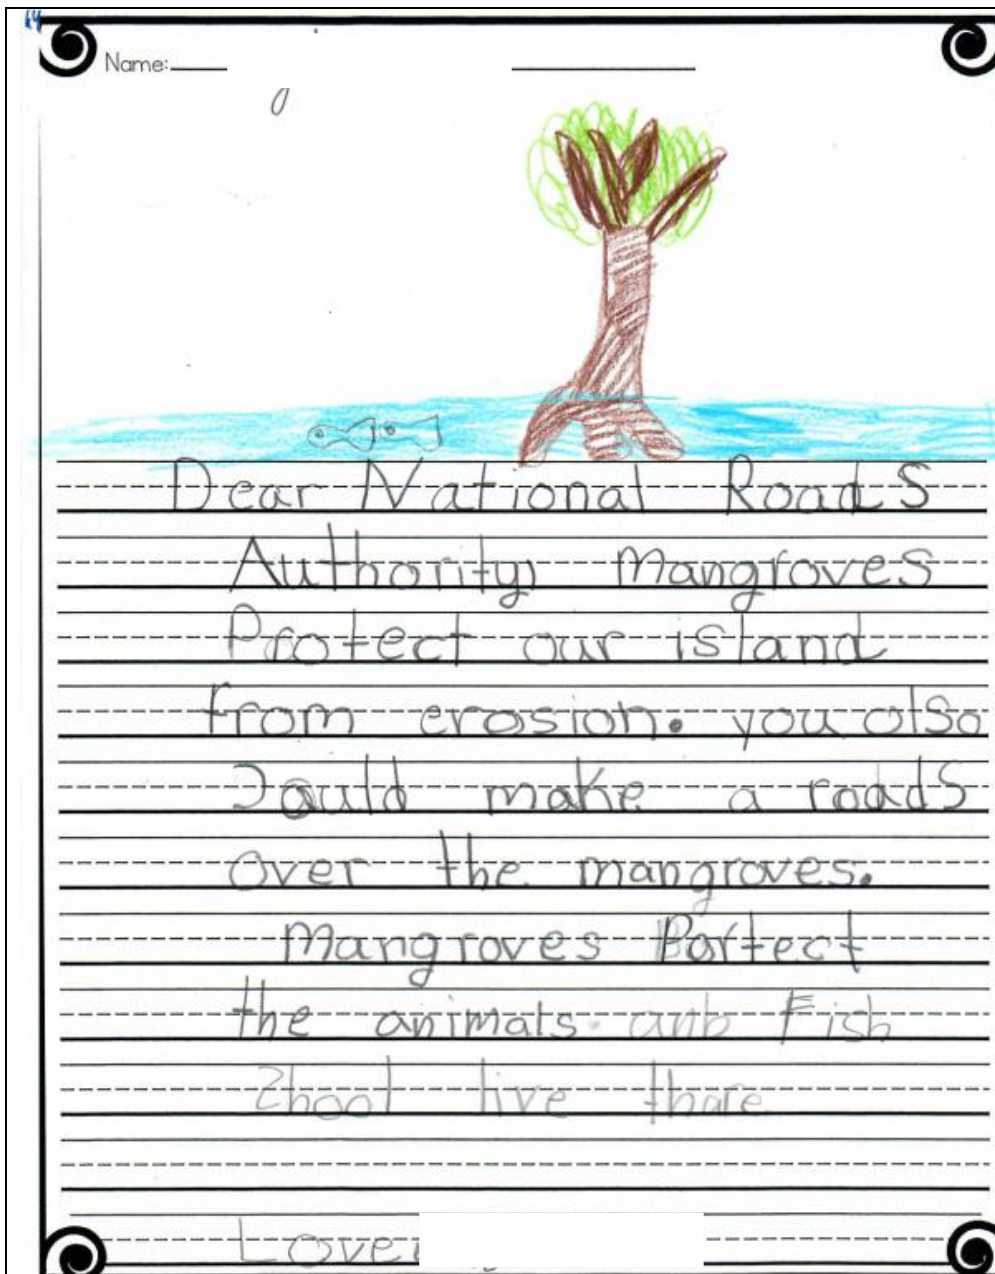 Name:
Dear National Roads
Authority, Mangroves
Protect our island
from erosion. you also
Could make a roads
over the mangroves.
Mangroves Portect
the animals. anb Fish
Zhool live thare
Love,